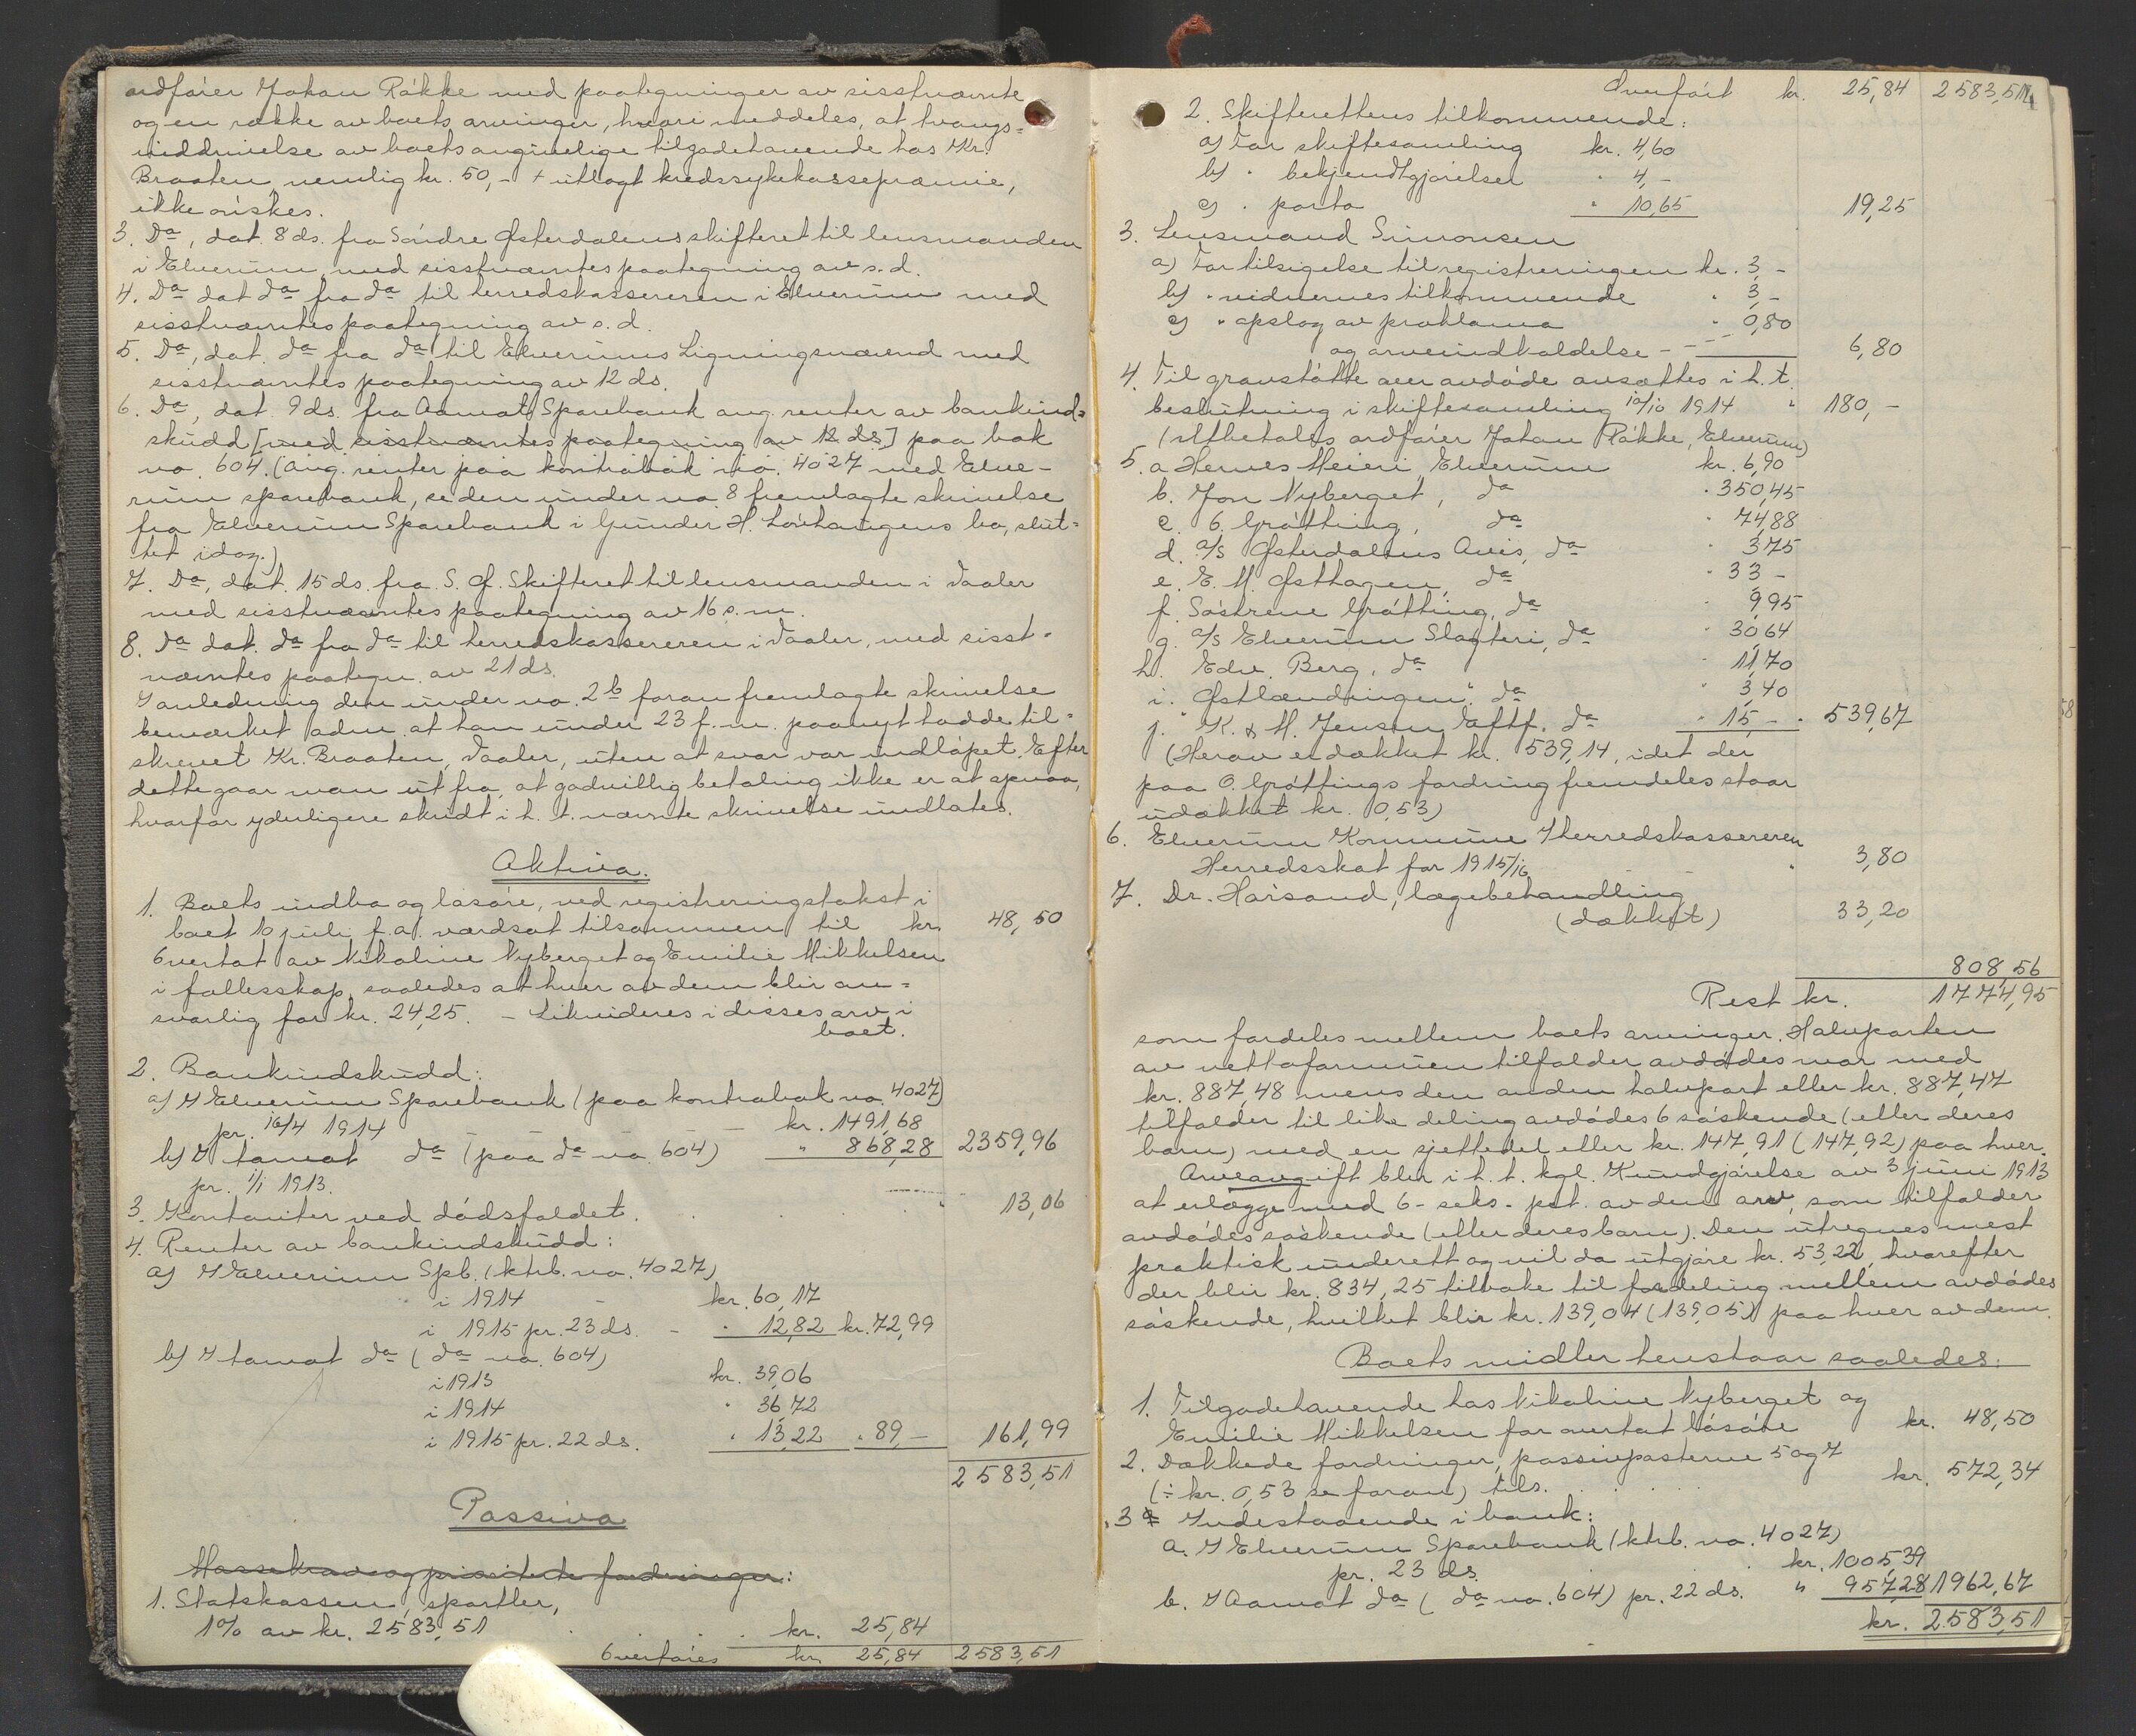 ordfører Johan Røkke med paategninger av sisstnævnte
og en række av boets arvinger, hvori meddeles, at tvangs=
inddrivelse av boets angivelige tilgodehavende hos Kr.
Braaten, nemlig kr. 50,- + utlagt kredssykekassepræmie,
ikke ønskes.
3. Do, dat. 8 ds. fra Søndre Østerdalens skifteret til lensmanden
i Elverum, med sisstnævntes paategning av s. d.
4. Do dat do fra do til herredskassereren i Elverum med
sisstnævntes paategning av s. d.
5. Do, dat. do fra do til Elverums Ligningsnævnd med
sisstnævntes paategning av 12 ds.
6. Do, dat. 9 ds. fra Aamot Sparebank ang. renter av bankind=
skudd [med sisstnævntes paategning av 12 ds.] paa bok
no. 604. (Ang. renter paa kontrabok no. 4027 med Elve-
rum sparebank, se den under no. 8 fremlagte skrivelse
fra Elverum Sparebank i Gunder H. Løvhaugens bo, slut=
tet idag.)
7. Do, dat. 15 ds. fra S. Ø. Skifteret til lensmanden i Vaaler
med sisstnævntes paategning av 16 s. m.
8. Do dat. do fra do til herredskassereren i Vaaler, med sisst=
nævntes paategn. av 21 ds.
I anledning den under no. 2 b foran fremlagte skrivelse
bemerket adm. at han under 23 f. m. paanyt hadde til=
skrevet Kr. Braaten, Vaaler, uten at svar var indløpet. Efter
dette gaar man ut fra, at godvillig betaling ikke er at opnaa,
hvorfor yderligere skridt i h. t. nævnte skrivelse undlates.
Aktiva.
1. Boets indbo og løsøre, ved registreringstakst i
boet 10 juli f. a. værdsat tilsammen til kr. 48,50
Overtat av Nikoline Nyberget og Emilie Mikkelsen
i fællesskap, saaledes at hver av dem blir an=
svarlig for kr. 24,25. - Likvideres i disses arv i
boet.
2. Bankindskudd:
a) I Elverum Sparebank (paa kontrabok no. 4027)
pr. 16/4 1914 - kr. 1491,68
b) I Aamot do (paa do no. 604) " 868,28 2359,96
pr. 1/1 1913.
3. Kontanter ved dødsfaldet. " 13,06
4. Renter av bankindskudd:
a) I Elverum Spb. (ktrb. no. 4027)
i 1914 - kr. 60,17
i 1915 pr. 23 ds. - " 12,82 kr. 72,99
b) I Aamot do (do no. 604)
i 1913 kr. 39,06
i 1914 " 36,72
i 1915 pr. 22 ds. " 13,22 " 89,- 161,99
2583,51
Passiva
Massekrav og prioriterte fordringer:
1. Statskassen, sportler,
1% av kr. 2583,51 . . . kr. 25,84
Overføres kr. 25,84 2583,51
Overført kr. 25,84 2583,51
2. Skifterettens tilkommende:
a) For skiftesamling kr. 4,60
b) " bekjendtgjørelser " 4,-
c) " porto " 10,65 19,25
3. Lensmand Simonsen
a) For tilsigelse til registreringen kr. 3,-
b) " vidnernes tilkommende " 3,-
c) " opslag av proklama " 0,80
og arveindkaldelse - 6,80
4. Til gravstøtte over avdøde ansættes i h. t.
beslutning i skiftesamling 10/10 1914 " 180,-
(Utbetales ordfører Johan Røkke, Elverum)
5. a Hernes Meieri, Elverum kr. 6,90
b. Jon Nyberget, do " 350,45
c. O. Grøtting, do " 74,88
d. A/S Østerdalens Avis, do " 3,75
e. E. M. Østhagen, do " 33 -
f. Søstrene Grøtting, do " 9,95
g. A/S Elverum Slagteri, do " 30,64
h. Edv. Berg, do " 11,70
i. "Østlændingen", do " 3,40
j. K. & M. Jensen Eftf. do " 15,- " 539,67
(Herav er dækket kr. 539,14, idet der
paa O. Grøttings fordring fremdeles staar
udækket kr. 0,53)
6. Elverum Kommune v/herredskassereren
Herredsskat for 1915/16 " 3,80
7. Dr. Harsand, lægebehandling
(dækket) 33,20
808,56
Rest kr. 1774,95
som fordeles mellem boets arvinger. Halvparten
av nettoformuen tilfalder avdødes mor med
kr. 887,48 mens den anden halvpart eller kr. 887,47
tilfalder til like deling avdødes 6 søskende (eller deres
barn) med en sjettedel eller kr. 147,91 (147,92) paa hver.
Arveavgift blir i h. t. kgl. Kundgjørelse av 3 juni 1913
at erlægge med 6- seks- pct. av den arv, som tilfalder
avdødes søskende (eller deres barn). Den utregnes mest
praktisk underett og vil da utgjøre kr. 53,22, hvorefter
der blir kr. 834,25 tilbake til fordeling mellem avdødes
søskende, hvilket blir kr. 139,04 (139,05) paa hver av dem.
Boets midler henstaar saaledes:
1. Tilgodehavende hos Nikoline Nyberget og
Emilie Mikkelsen for overtat løsøre kr. 48,50
2. Dækkede fordringer, passivposterne 5 og 7
(÷ kr. 0,53 se foran) tils. . . . . kr. 572,34
3 Indestaaende i bank:
a. I Elverum Sparebank (ktrb. no. 4027)
pr. 23 ds. . . kr. 1005,39
b. I Aamot do (do no. 604) pr. 22 ds. " 957,28 1962,67
kr. 2583,51